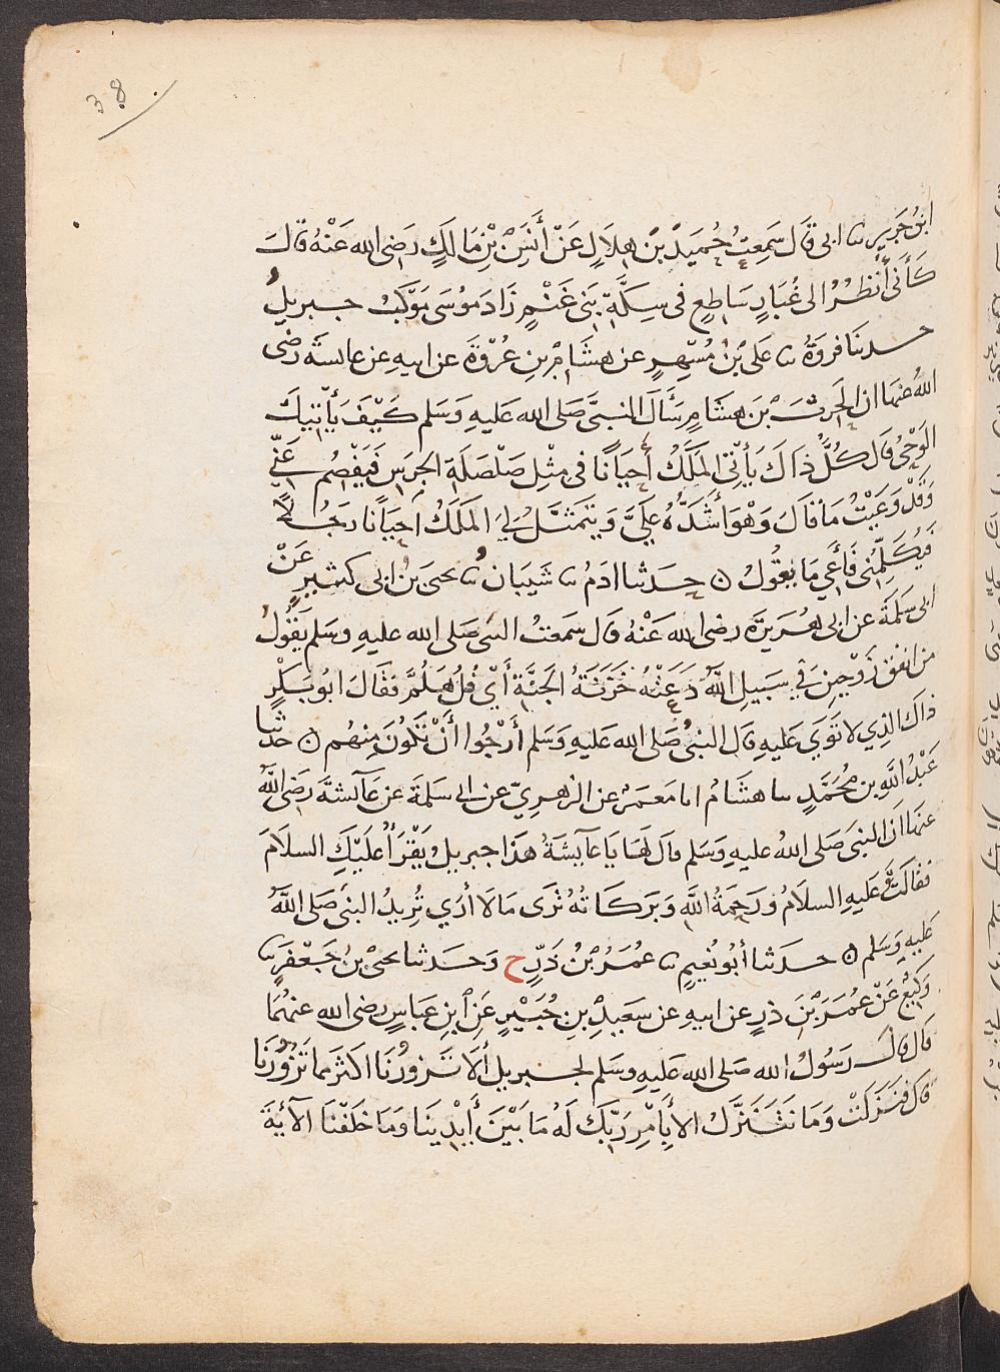 38
ابنُ جَرِيرٍ ثنا ابى قَالَ سَمِعتُ حُمَيدَ بْنَ هِلَالٍ عَنْ أَنَسِ بْنِ مَالِكٍ رَضى الله عَنْهُ قَالَ
كَأَنِّى أَنْظُرُ الى غُبَارٍ سَاطِعٍ فى سِكَّةِ بَنِى غَنْمٍ زَادَ مُوسَى مَوْكِبُ جبريلُ
حدثنا فروَةُ ثنا عَلى بْنُ مُسْهِرٍ عن هشَامِ بنِ عُرْوَةَ عن ابيهِ عن عائشَةَ رضى
اللهُ عنهَا ان الحَرِثَ بْنَ هِشَامٍ سَأَلَ النبىَّ صَلى الله عَليهِ وَسَلم كَيْفَ يَأْتِيكَ
الوَحْىُ قَال كُلُّ ذَاكَ يَأْتِى المَلَكُ أَحيَانًا فى مِثْلِ صَلْصَلَةِ الجرَسِ فَيَفْصِمُ عَنِّى
وَقَدْ وَعَيْتُ مَا قَالَ وَهْوَ أَشَدُّهُ عَلَىَّ وَيتَمثَّلُ لِىَ المَلَكُ أحيَانًا رَجُلًا
فَيُكَلِّمُنِى فَأَعِي مَا يَقُولُ ٥ حدَثنا ادَمُ ثنا شَيبَان ثنا يحيَى بنُ ابى كثيرٍ عَنْ
ابى سَلَمَةَ عن ابى هُرَيرَة رضى الله عَنْهُ قَال سَمعتُ النبى صَلى الله عليهِ وسَلم يَقُولُ
من انفق زَوْجَينِ فِي سَبيلِ اللَّهِ دَعَتْهُ خَزَنَةُ الجَنَّةِ أَيْ فُلُ هَلُمَّ فقَالَ ابُو بَكْرٍ
ذاكَ الذِي لا تَوَي عَليهِ قالَ النبىُّ صَلى الله عَليهِ وَسَلم أرْجُوا أَنْ تَكُونَ مِنهُم ٥ حدثنا
عَبْدُ اللَّهِ بن مُحَمَّدٍ ثنا هشَامُ انا مَعمَرٌ عن الزهرِيّ عن ابى سَلمَةَ عن عَآئشَةَ رضى اللَّهُ
عنهَا انَ النبىَ صَلى اللهُ عليهِ وَسَلم قال لَهَا يَا عَآيشَةُ هَذا جبريلُ يَقْرَأُ عَلَيْكِ السلَامَ
فقالَت وَعَليهِ السلَامُ ورَحمَةُ اللَّهِ وَبَركَاتهُ تُرَى مَا لَا أرَي تُرِيدُ النبىَ صَلى اللَّهُ
عَليهِ وَسَلم ٥ حدَثنا أَبُو نُعَيمٍ ثنا عُمَرُ بْنُ ذَرٍّ ح وَحدَثنا يحيىْ بنُ جَعْفَرٍ ثنا
وَكيعٌ عَنْ عُمَرَ بْنَ ذرٍ عن ابيهِ عن سَعيدِ بنِ جُبَيْرٍ عَنِ ابنِ عَبَاسٍ رضى الله عنهُمَا
قَال قَالَ رَسُولُ الله صَلى الله عَليهِ وسَلم لجبريل أَلَا تَزورُنَا اكثَرَ مما تَزُورُنَا
قَال فَنَزَلَتْ وَمَا نَتَنَزَّلُ الا بِأَمْرِ رَبِّكَ لَهُ مَا بَيْنَ أَيْدِينَا وَمَا خَلفَنَا الآيَةَ